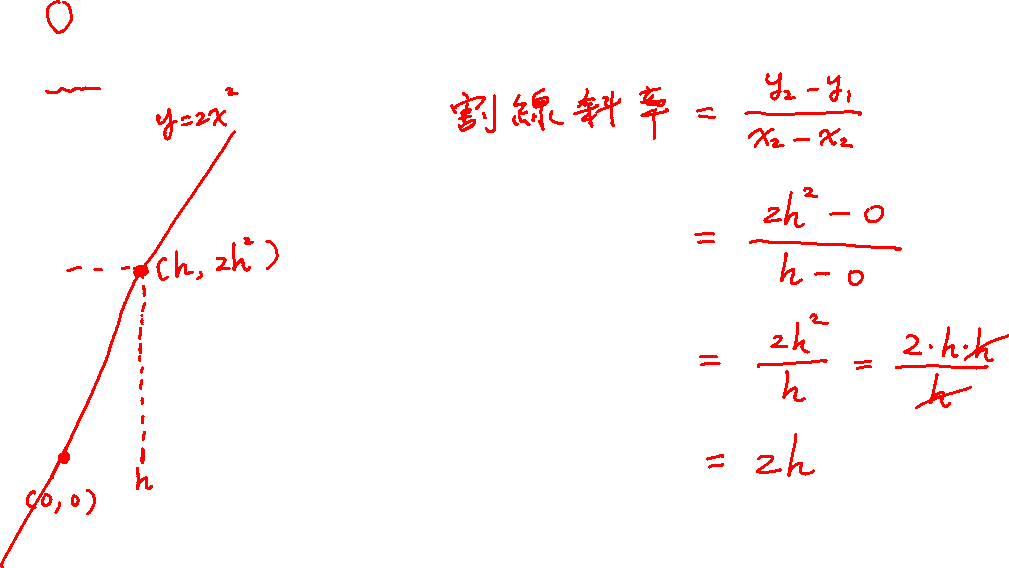 0
y=2x²
(h, 2h²)
h
(0,0)
割線斜率 = (y₂-y₁)/(x₂-x₂)
= (2h²-0)/(h-0)
= 2h²/h = (2·h·h)/h
= 2h